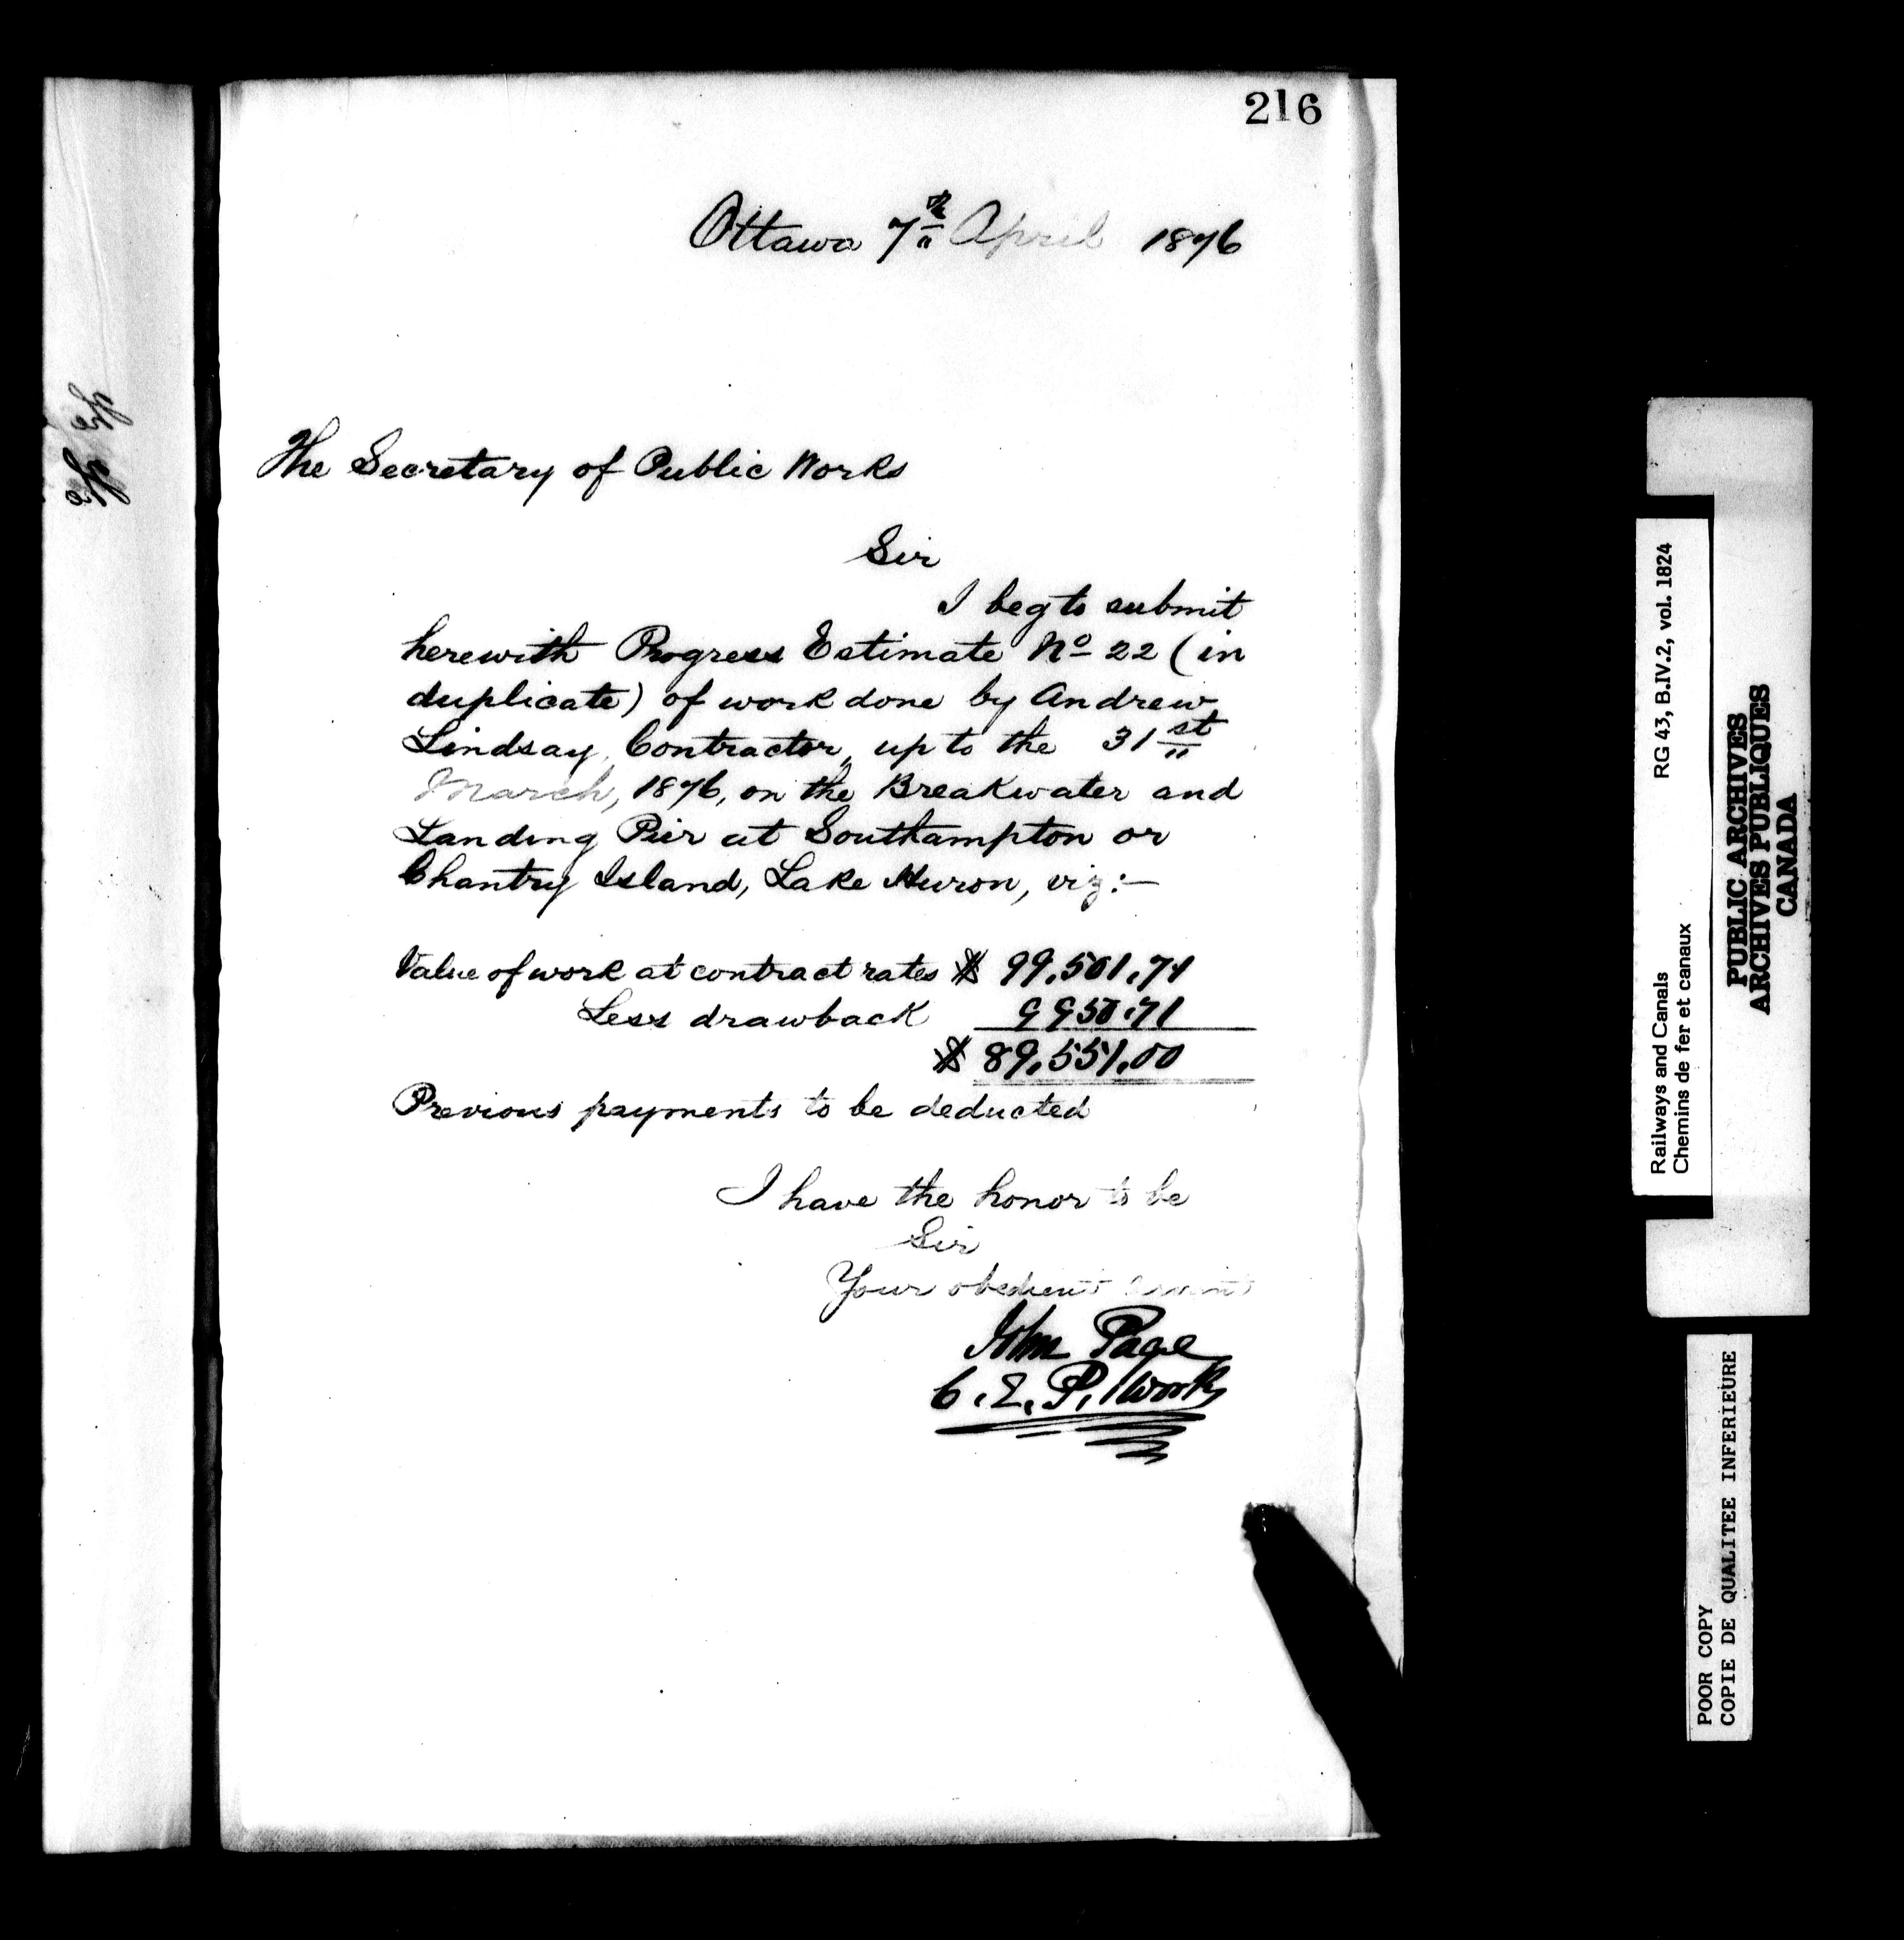 216
Ottawa 7th April 1876
The Secretary of Public Works
Sir
I beg to submit
herewith Progress Estimate No 22 (in
duplicate) of work done by Andrew
Lindsay, Contractor, up to the 31st
March, 1876, on the Breakwater and
Landing Pier at Southampton or
Chantry Island, Lake Huron, viz:—
Value of work at contract rates $ 99,501.71
Less drawback 9950.71
$ 89,551.00
Previous payments to be deducted
I have the honor to be
Sir
Your obedient servant
John Page
C. E. P. Works
Railways and Canals RG 43, B.IV.2, vol. 1824
Chemins de fer et canaux
PUBLIC ARCHIVES
ARCHIVES PUBLIQUES
CANADA
POOR COPY
COPIE DE QUALITEE INFERIEURE